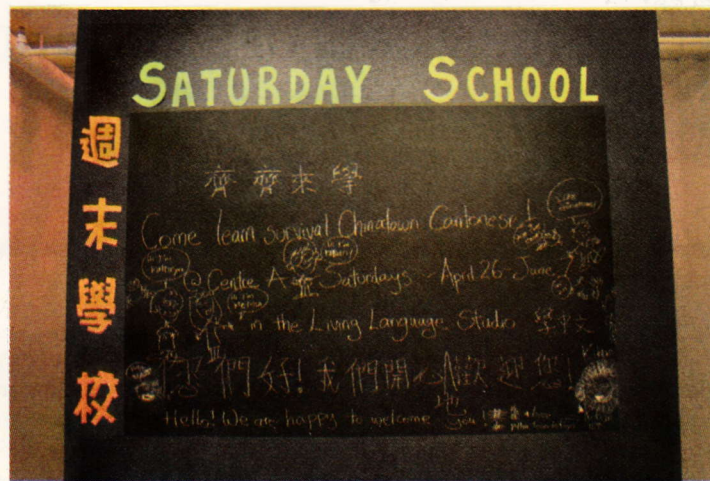 SATURDAY SCHOOL
週末學校
齊齊來學
Come learn survival Chinatown Cantonese!
Centre A Saturdays ~ April 26 - June
in the Living Language Studio 學校
您們好!我們開心歡迎您!
Hello! We are happy to welcome you!